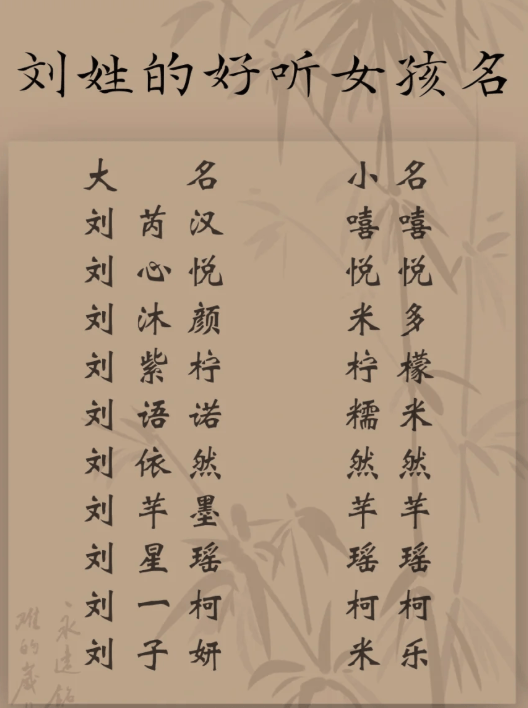 刘姓的好听女孩名
大名 小名
刘芮汉 嘻嘻
刘心悦 悦悦
刘沐颜 米多
刘紫柠 柠檬
刘语诺 糯米
刘依然 然然
刘芊墨 芊芊
刘星瑶 瑶瑶
刘一柯 柯柯
刘子妍 米乐